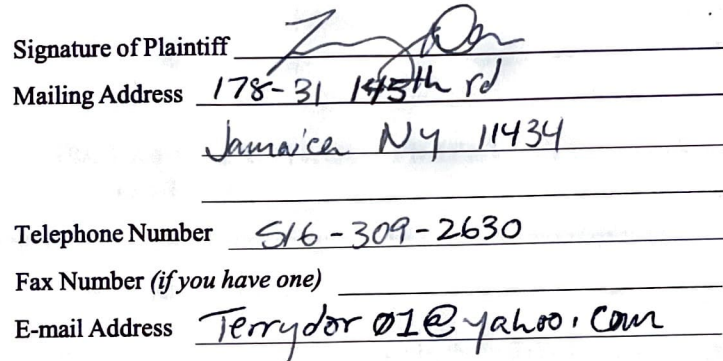 Signature of Plaintiff
Mailing Address 178-31 145th rd
Jamaica NY 11434
Telephone Number 516-309-2630
Fax Number (if you have one)
E-mail Address Terrydor01@yahoo.com